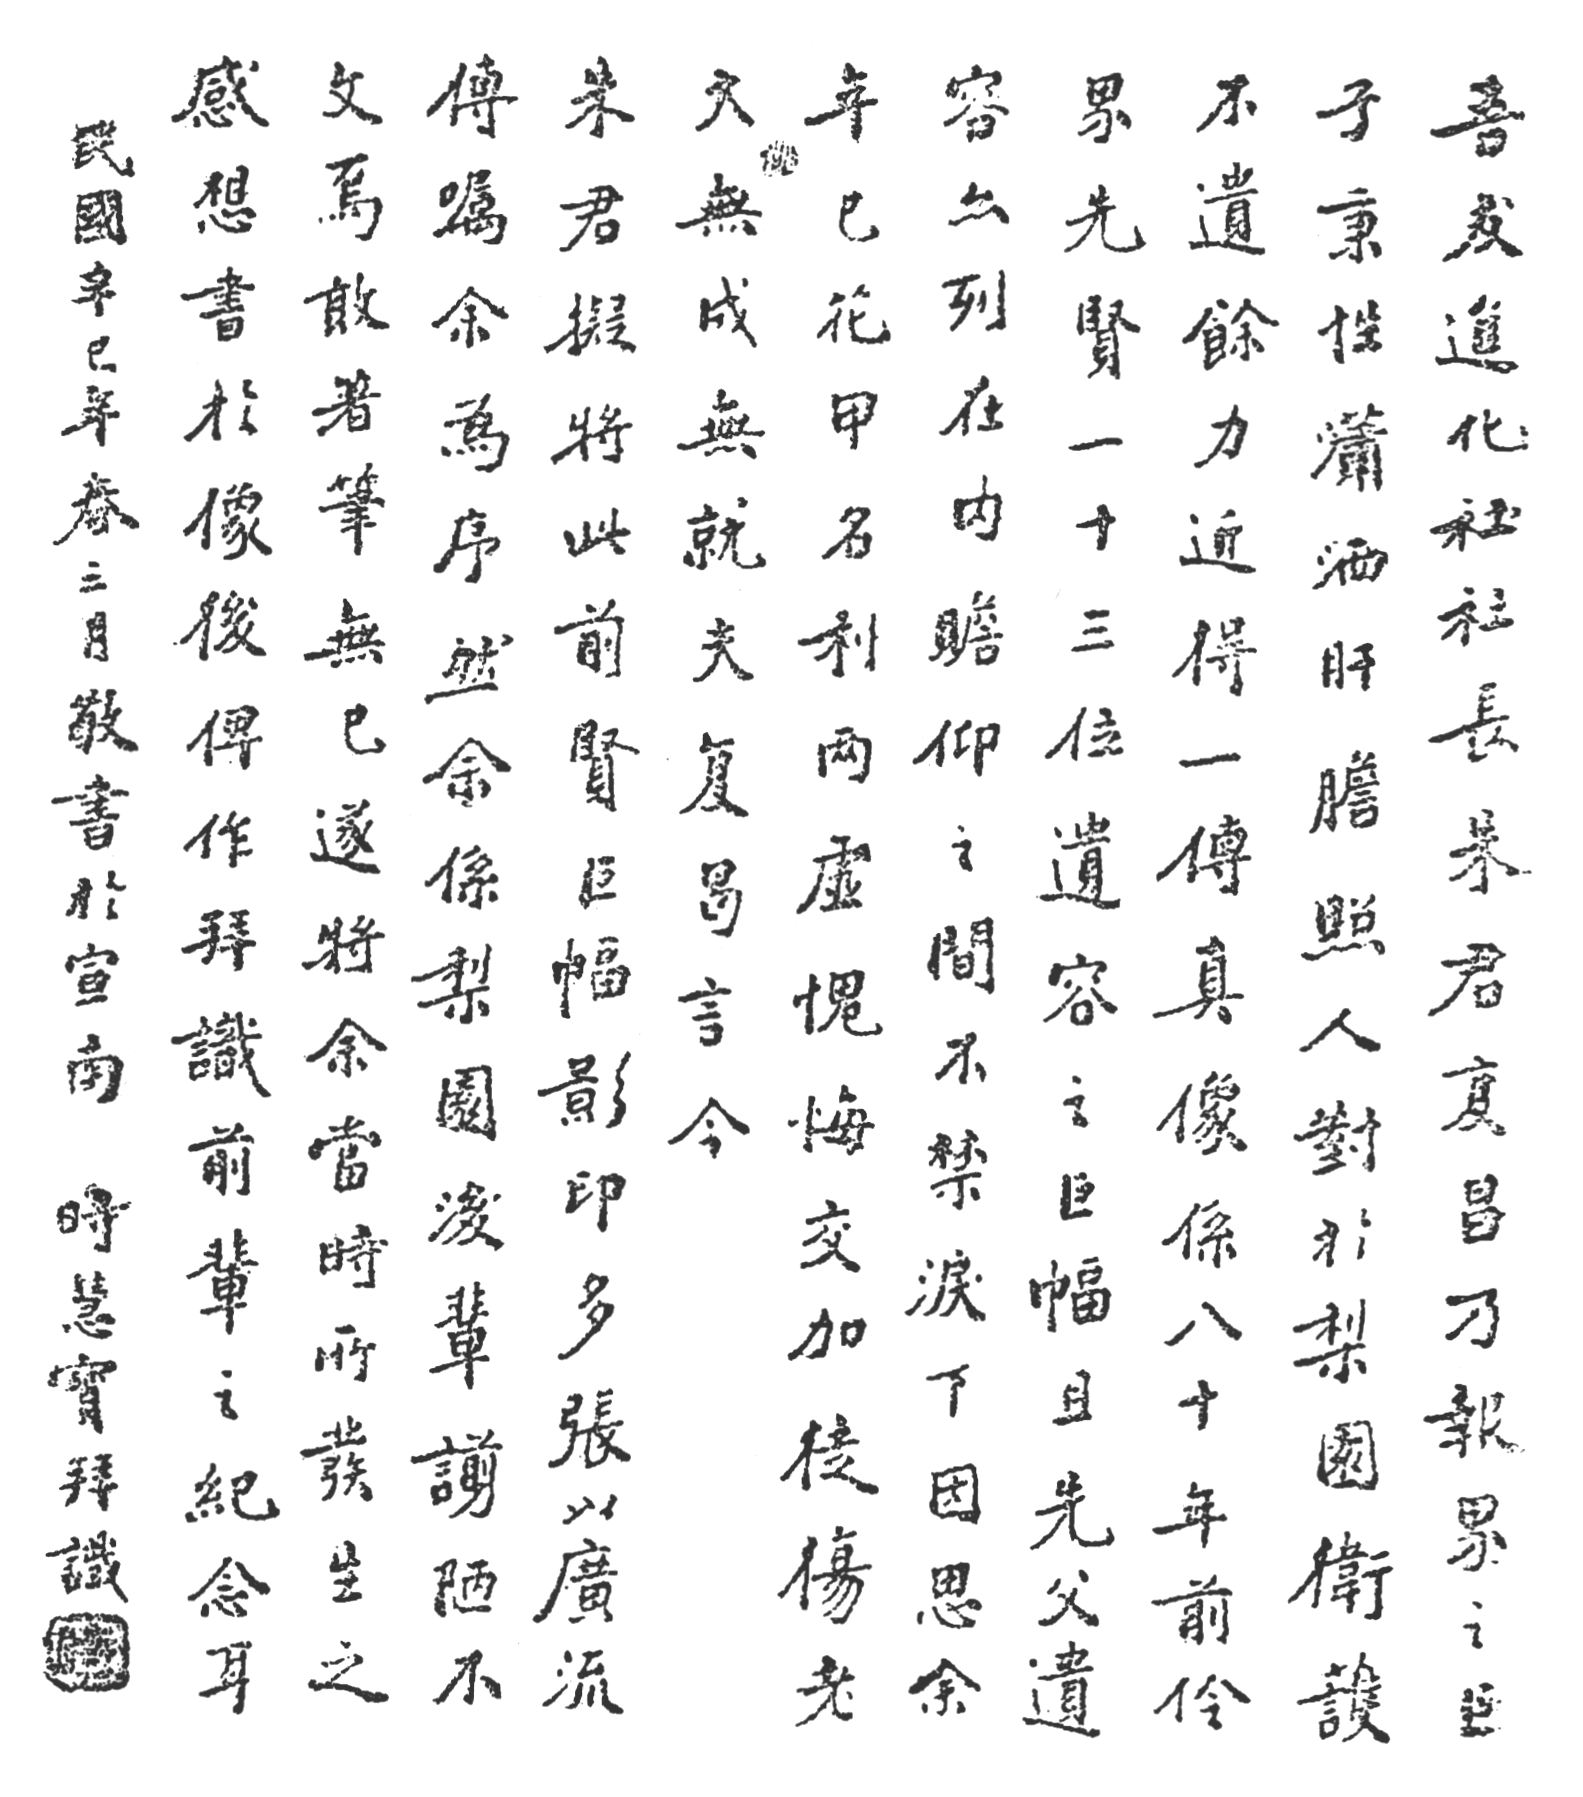 吾友進化社社長朱君夏昌乃報界之巨
子秉性瀟洒肝膽照人對於梨園衛護
不遺餘力近得一傳真像係八十年前伶
界先賢一十三位遺容之巨幅且先父遺
容亦列在内瞻仰之間不禁淚下因思余
年已花甲名利兩虛愧悔交加徒傷老
大無成無就夫復曷言今
朱君擬將此前賢巨幅影印多張以廣流
傳囑余為序然余係梨園後輩謭陋不
文焉敢著筆無已遂將余當時所發生之
感想書於像後俾作拜識前輩之紀念耳
民國辛巳年春二月敬書於宣南 時慧寶拜識